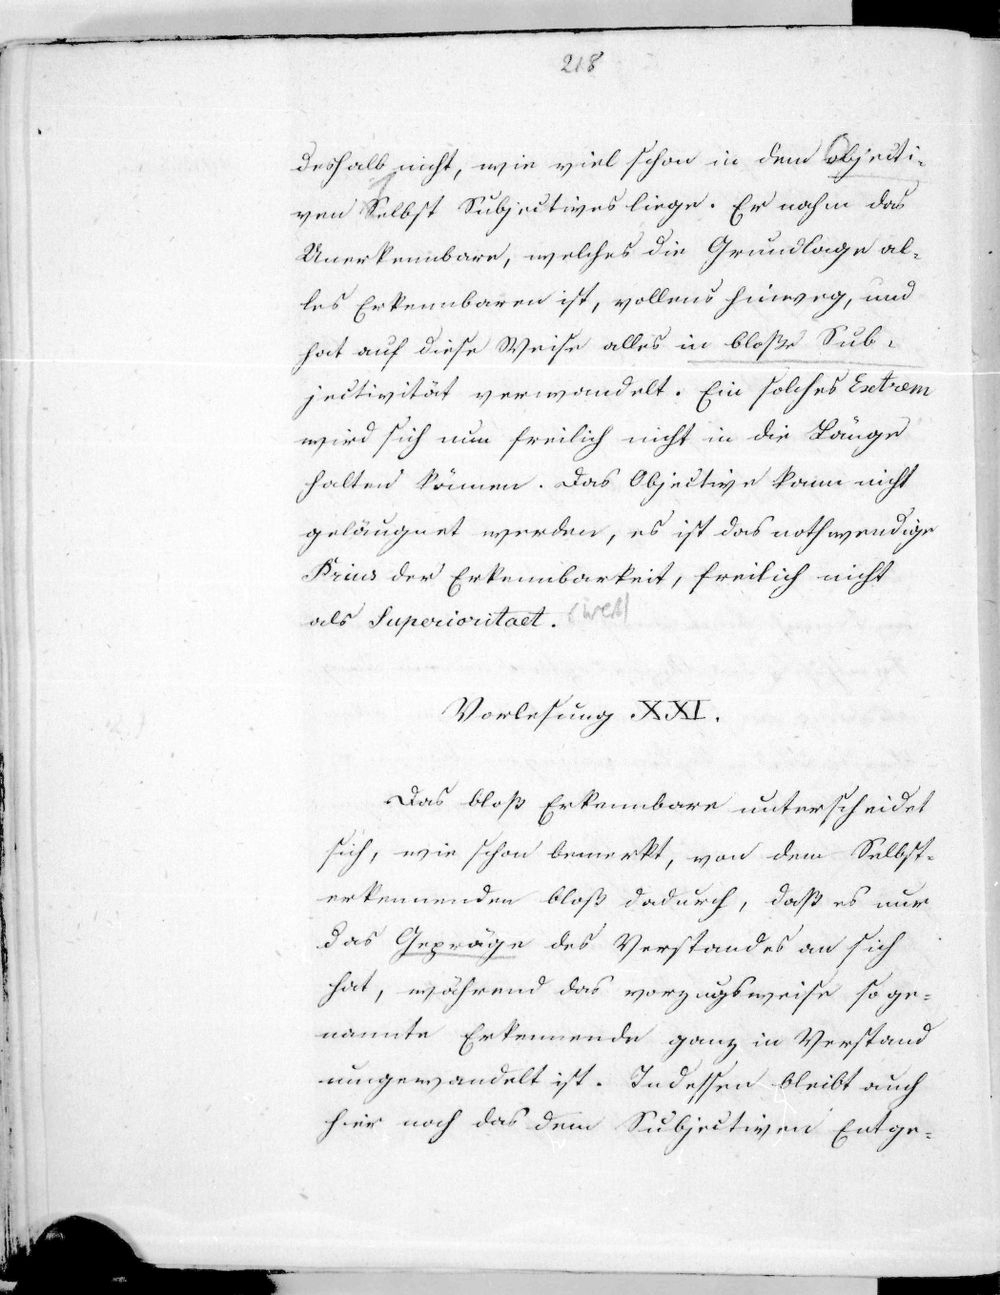 218
deshalb nicht, wie viel schon in dem objecti-
ven Selbst Subjectives liege. Er nahm das
Unerkennbare, welches die Grundlage al-
les Erkennbaren ist, vollens hinweg, und
hat auf diese Weise alles in bloße Sub-
jectivität verwandelt. Ein solches Extrem
wird sich nun freilich nicht in die Länge
halten können. Das Objective kann nicht
geläugnet werden, es ist das nothwendige
Prius der Erkennbarkeit, freilich nicht
als Superioritaet.
Vorlesung XXI.
Das bloß Erkennbare unterscheidet
sich, wie schon bemerkt, von dem Selbst-
erkennenden bloß dadurch, daß es nur
das Gepräge des Verstandes an sich
hat, während das vorzugsweise soge-
nannte Erkennende ganz in Verstand
umgewandelt ist. Indessen bleibt auch
hier noch das dem Subjectiven Entge-